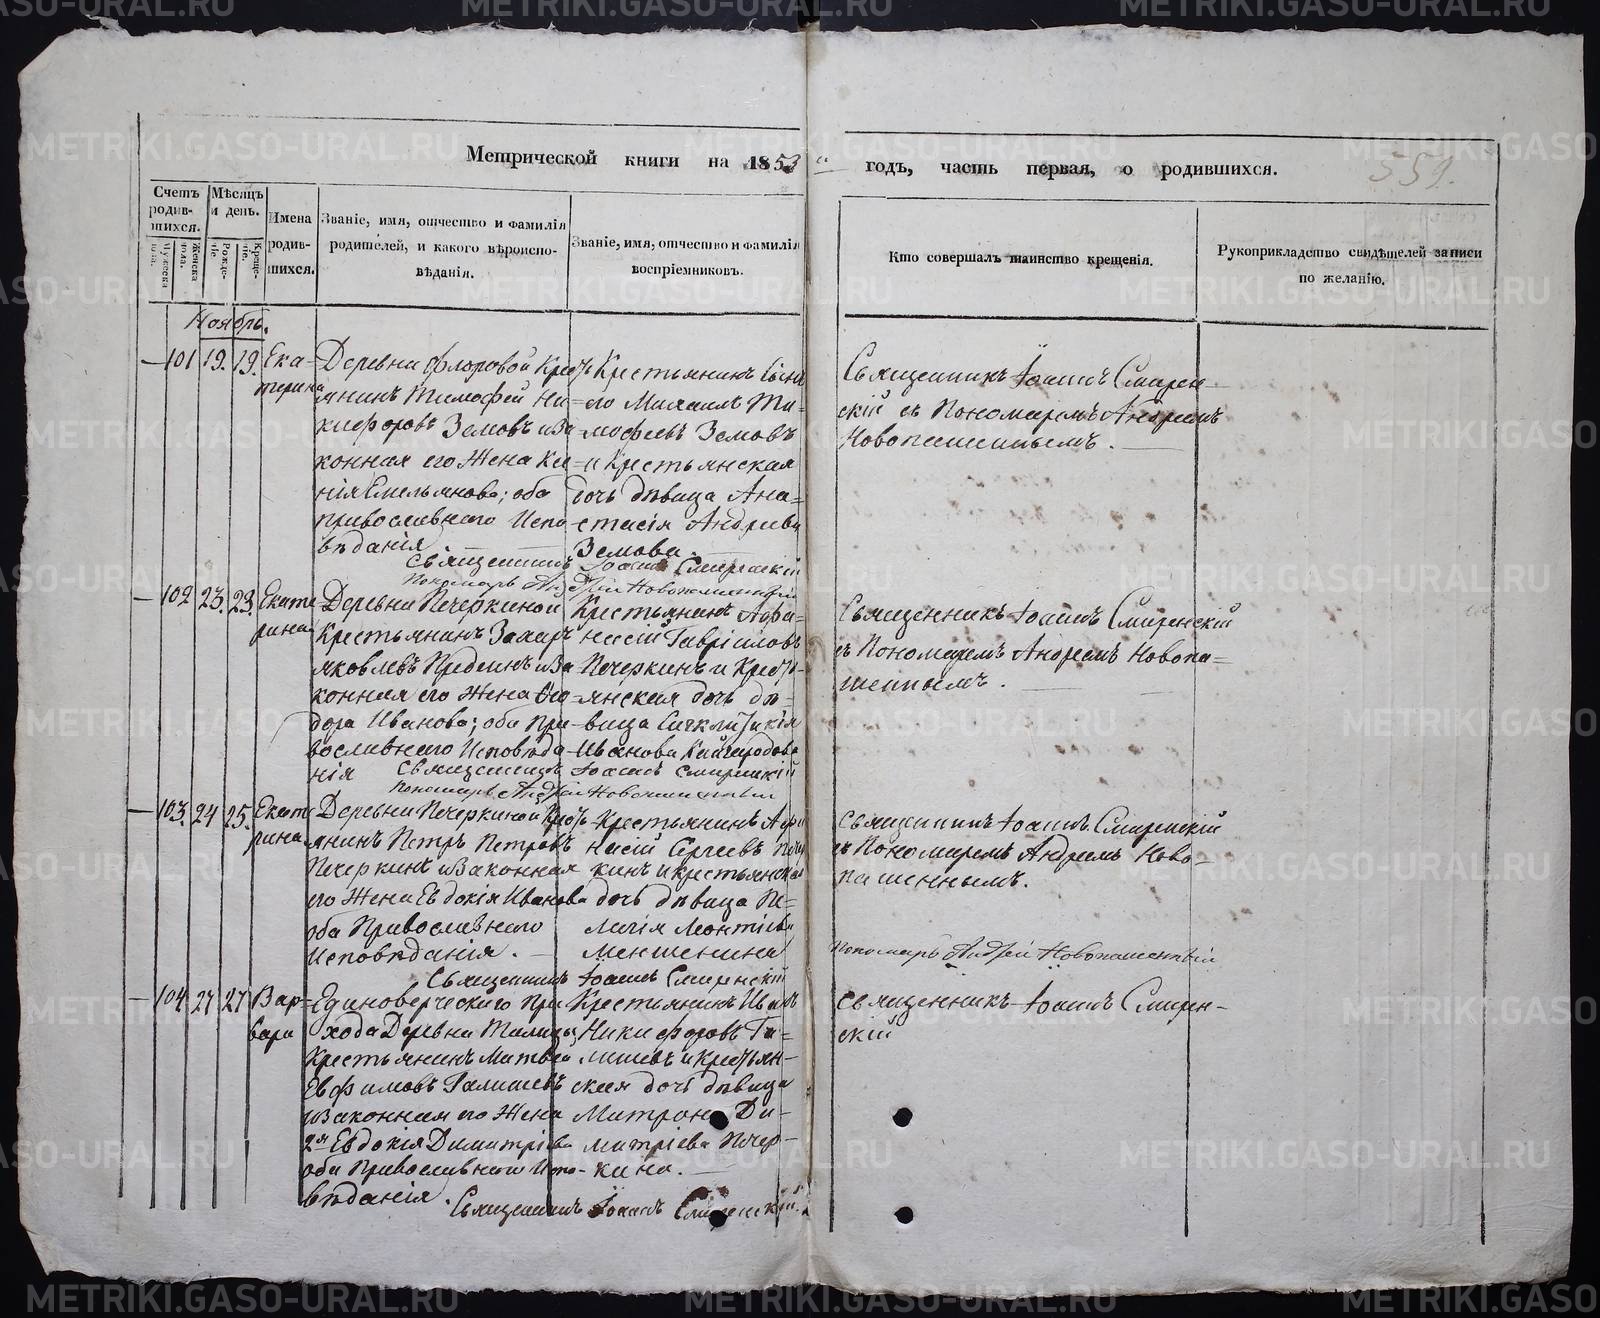 Метрической книги на 1853 годъ, часть первая, о родившихся.
559.
Счетъ родившихся.
Мужеска пола.
Женска пола.
Мѣсяцъ и день.
Рожденіе.
Крещеніе.
Имена родившихся.
Званіе, имя, отчество и фамилія
родителей, и какого вѣроиспо-
вѣданія.
Званіе, имя, отчество и фамилія
воспріемниковъ.
Кто совершалъ таинство крещенія.
Рукоприкладство свидѣтелей записи
по желанію.
Ноябрь.
101 19. 19. Ека-
терина
Деревни Флоровой Крест-
янинъ Тимофей Ни-
кифоровъ Земовъ и За
конная его Жена Ксе-
нія Емельянова; оба
православнаго Испо-
вѣданія
Крестьянинъ Сынъ
его Михаилъ Ти-
мофеевъ Земовъ
и Крестьянская
дочь дѣвица Ана-
стасія Андреева
Земова.
Священникъ Іоаннъ Смирен-
скій съ Пономаремъ Андреемъ
Новопашеннымъ.
Священникъ Іоаннъ Смиренскій
Пономарь Андрей Новопашенный
102 23. 23. Екате
рина
Деревни Печеркиной
Крестьянинъ Захаръ
Яковлевъ Предеинъ и За
конная его Жена Ѳео-
дора Иванова; оба Пра-
вославнаго Исповѣда-
нія
Крестьянинъ Афа-
насій Гавріиловъ
Печеркинъ и Крест-
янская дочь дѣ-
вица Сигклитикія
Иванова Кайгородова
Священникъ Іоаннъ Смиренскій
съ Пономаремъ Андреемъ Новопа-
шеннымъ.
Священникъ Іоаннъ Смиренскій
Пономарь Андрей Новопашенный
103. 24 25. Екате
рина
Деревни Печеркиной Крест-
янинъ Петръ Петровъ
Печеркинъ и Законная
его Жена Евдокія Иванова
оба Православнаго
Исповѣданія.
Крестьянинъ Афа
насій Сергеевъ Печер
кинъ и крестьянская
дочь дѣвица Пе-
лагія Леонтіева
Меншенина
Священникъ Іоаннъ Смиренскій
съ Пономаремъ Андреемъ Ново-
пашеннымъ.
Пономарь Андрей Новопашенный
Священникъ Іоаннъ Смиренскій
104 27 27 Вар-
вара
Единоверческаго При
хода Деревни Талицы
Крестьянинъ Матвей
Евфимовъ Галишевъ
и Законная его Жена
2я Евдокія Димитріева
оба Православнаго Испо-
вѣданія.
Крестьянинъ Иванъ
Никифоровъ Га-
лишевъ и крестьян-
ская дочь дѣвица
Матрона Ди-
митріева Печер-
кина.
Священникъ Іоаннъ Смирен-
скій
Священникъ Іоаннъ Смиренскій
METRIKI.GASO-URAL.RU